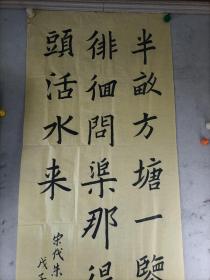 半畝方塘一鑒
徘徊問渠那得
頭活水来
宋代朱
戊